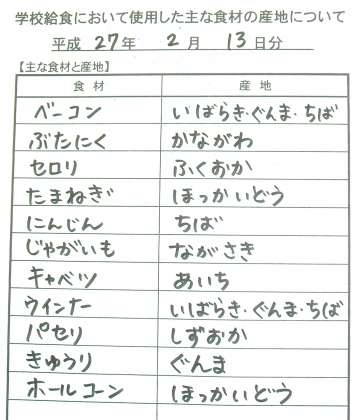 学校給食において使用した主な食材の産地について
平成 27年 2月 13日分
【主な食材と産地】
食材 産地
ベーコン いばらき・ぐんま・ちば
ぶたにく かながわ
セロリ ふくおか
たまねぎ ほっかいどう
にんじん ちば
じゃがいも ながさき
キャベツ あいち
ウインナー いばらき・ぐんま・ちば
パセリ しずおか
きゅうり ぐんま
ホールコーン ほっかいどう